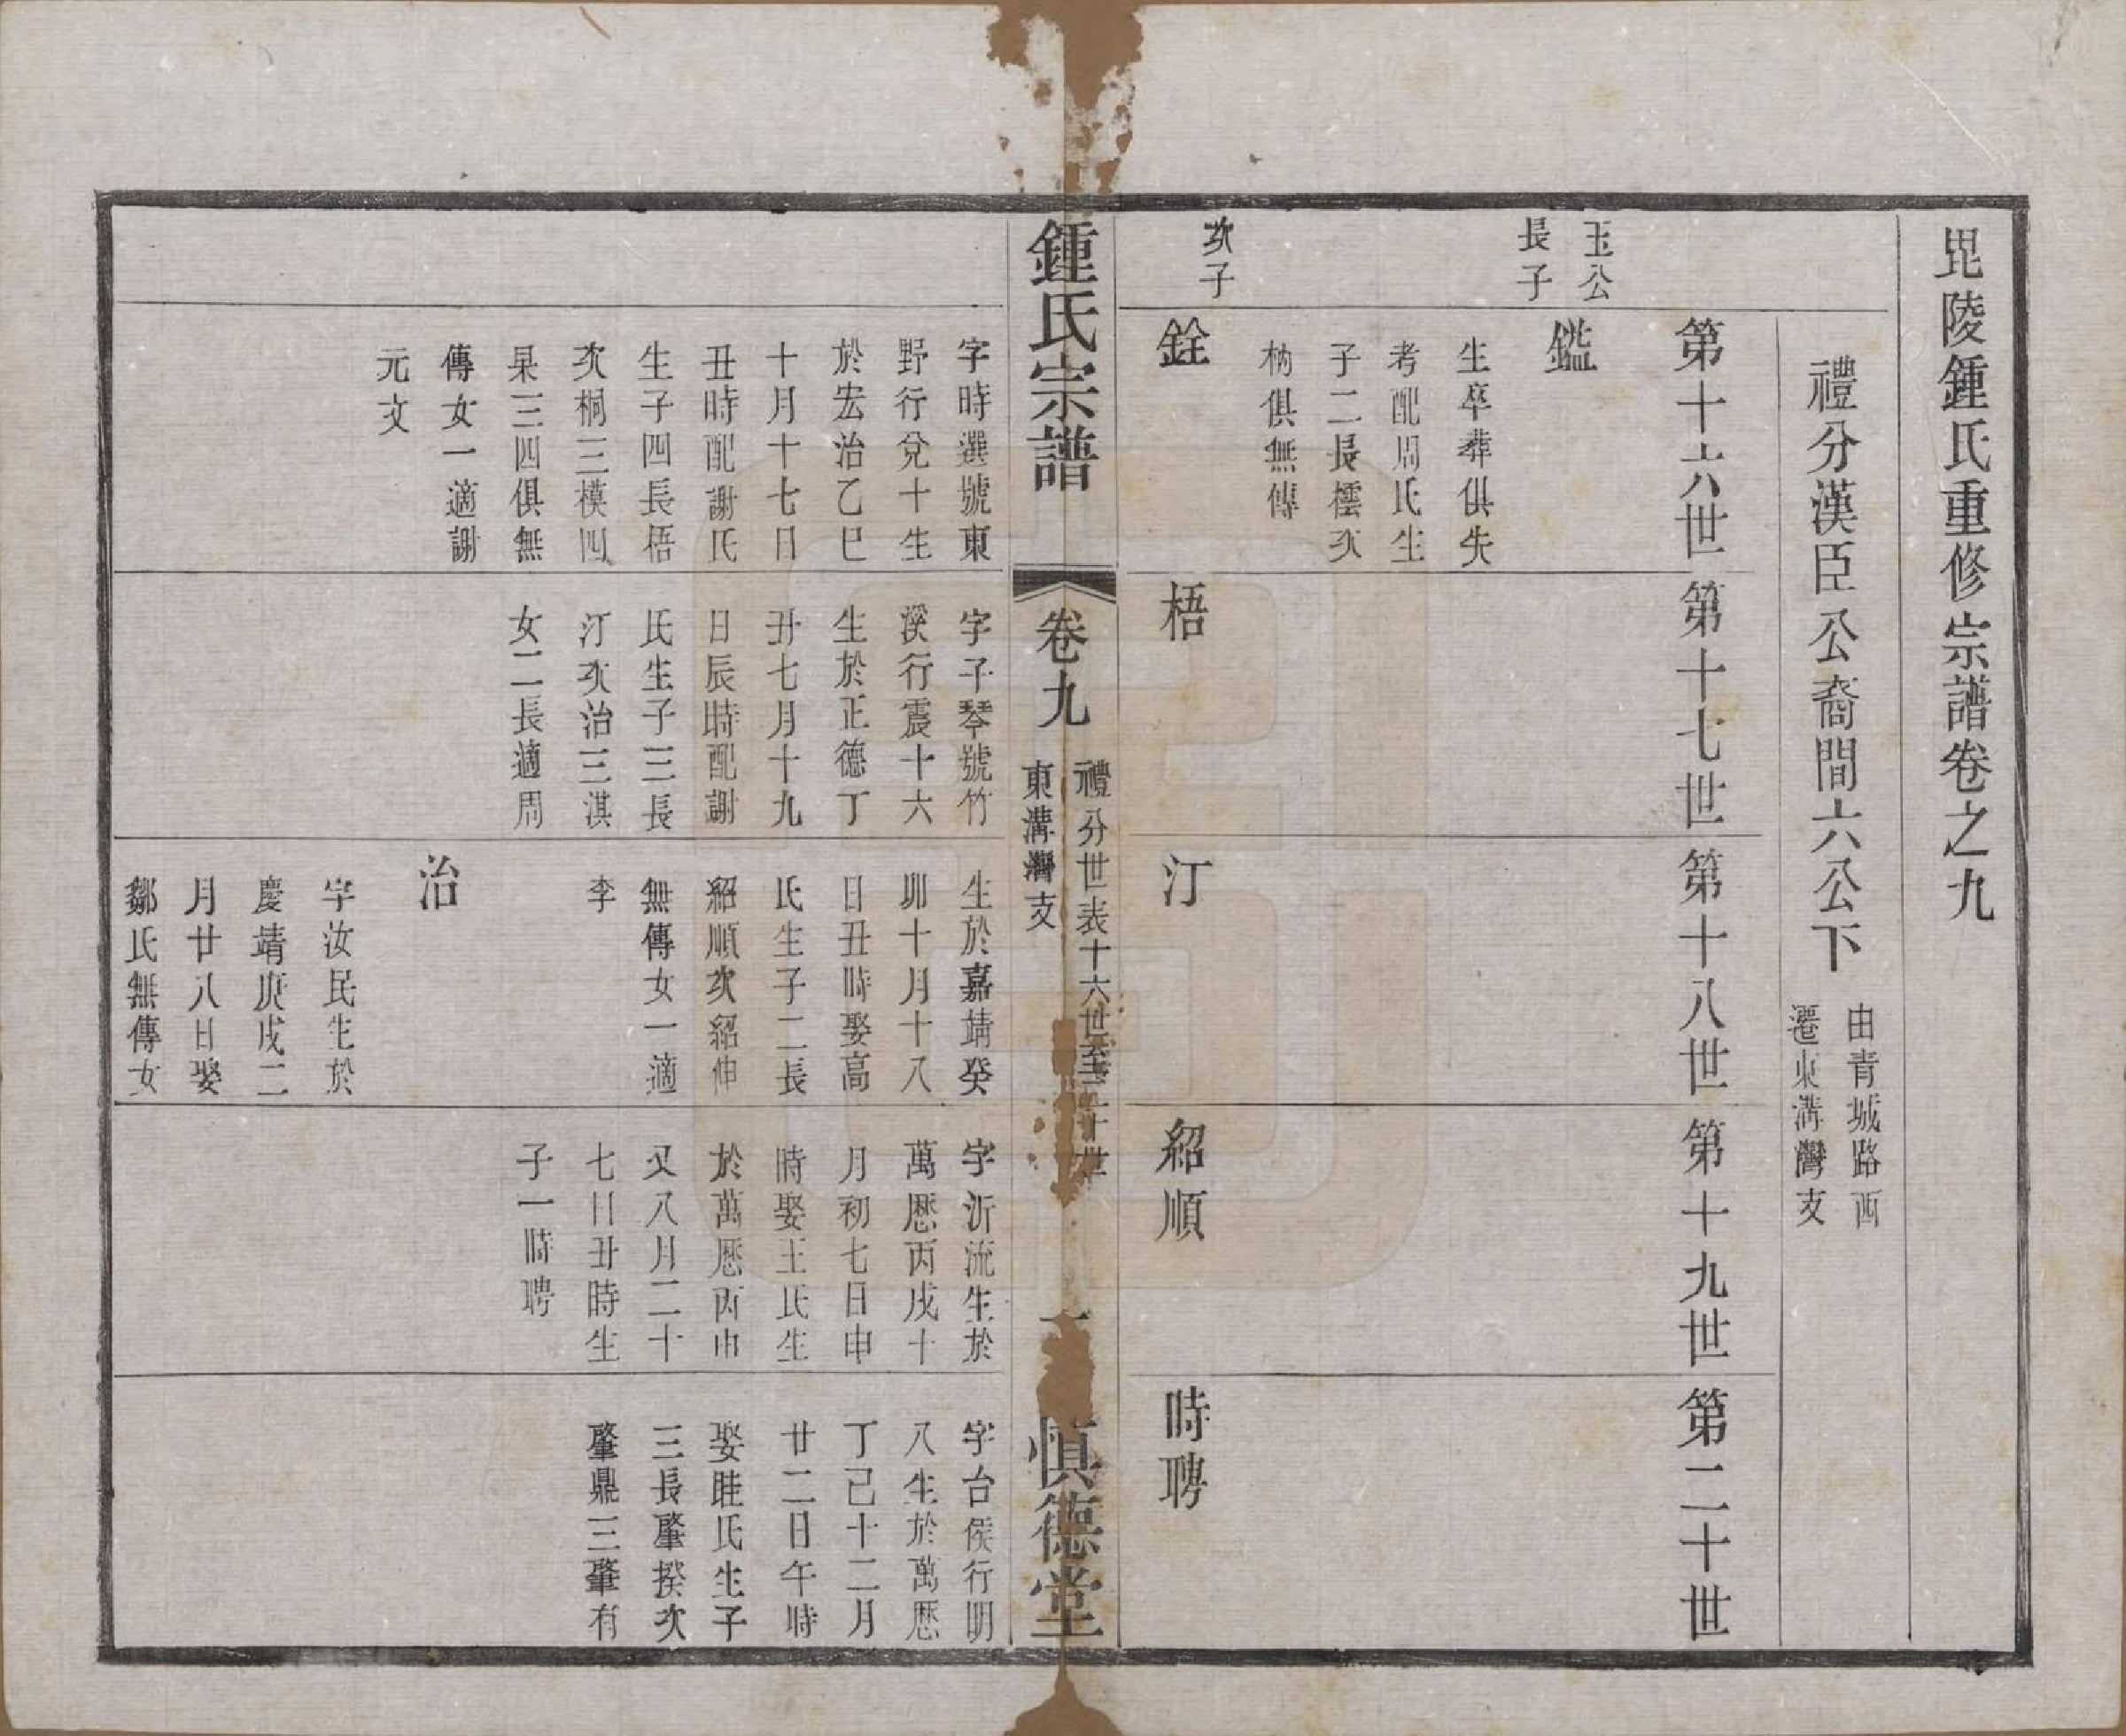 毘陵鍾氏重修宗譜卷之九
禮分漢臣公裔間六公下
由青城路西
遷東溝灣支
第十六世
第十七世
第十八世
第十九世
第二十世
玉公
長子
鑑
生卒葬俱失
考配周氏生
子二長橒次
柟俱無傳
次子
銓
梧
汀
紹順
時聘
鍾氏宗譜
卷九
禮分世表十六世至二十世
東溝灣支
一
慎德堂
字時選號東
野行兌十生
於宏治乙巳
十月十七日
丑時配謝氏
生子四長梧
次桐三模四
杲三四俱無
傳女一適謝
元文
字子琴號竹
溪行震十六
生於正德丁
丑七月十九
日辰時配謝
氏生子三長
汀次治三淇
女二長適周
生於嘉靖癸
卯十月十八
日丑時娶高
氏生子二長
紹順次紹伸
無傳女一適
李
治
字汝民生於
慶靖庚戌二
月廿八日娶
鄒氏無傳女
字沂流生於
萬厯丙戌十
月初七日申
時娶王氏生
於萬厯丙申
又八月二十
七日丑時生
子一時聘
字台侯行明
八生於萬厯
丁己十二月
廿二日午時
娶眭氏生子
三長肇揆次
肇鼎三肇有